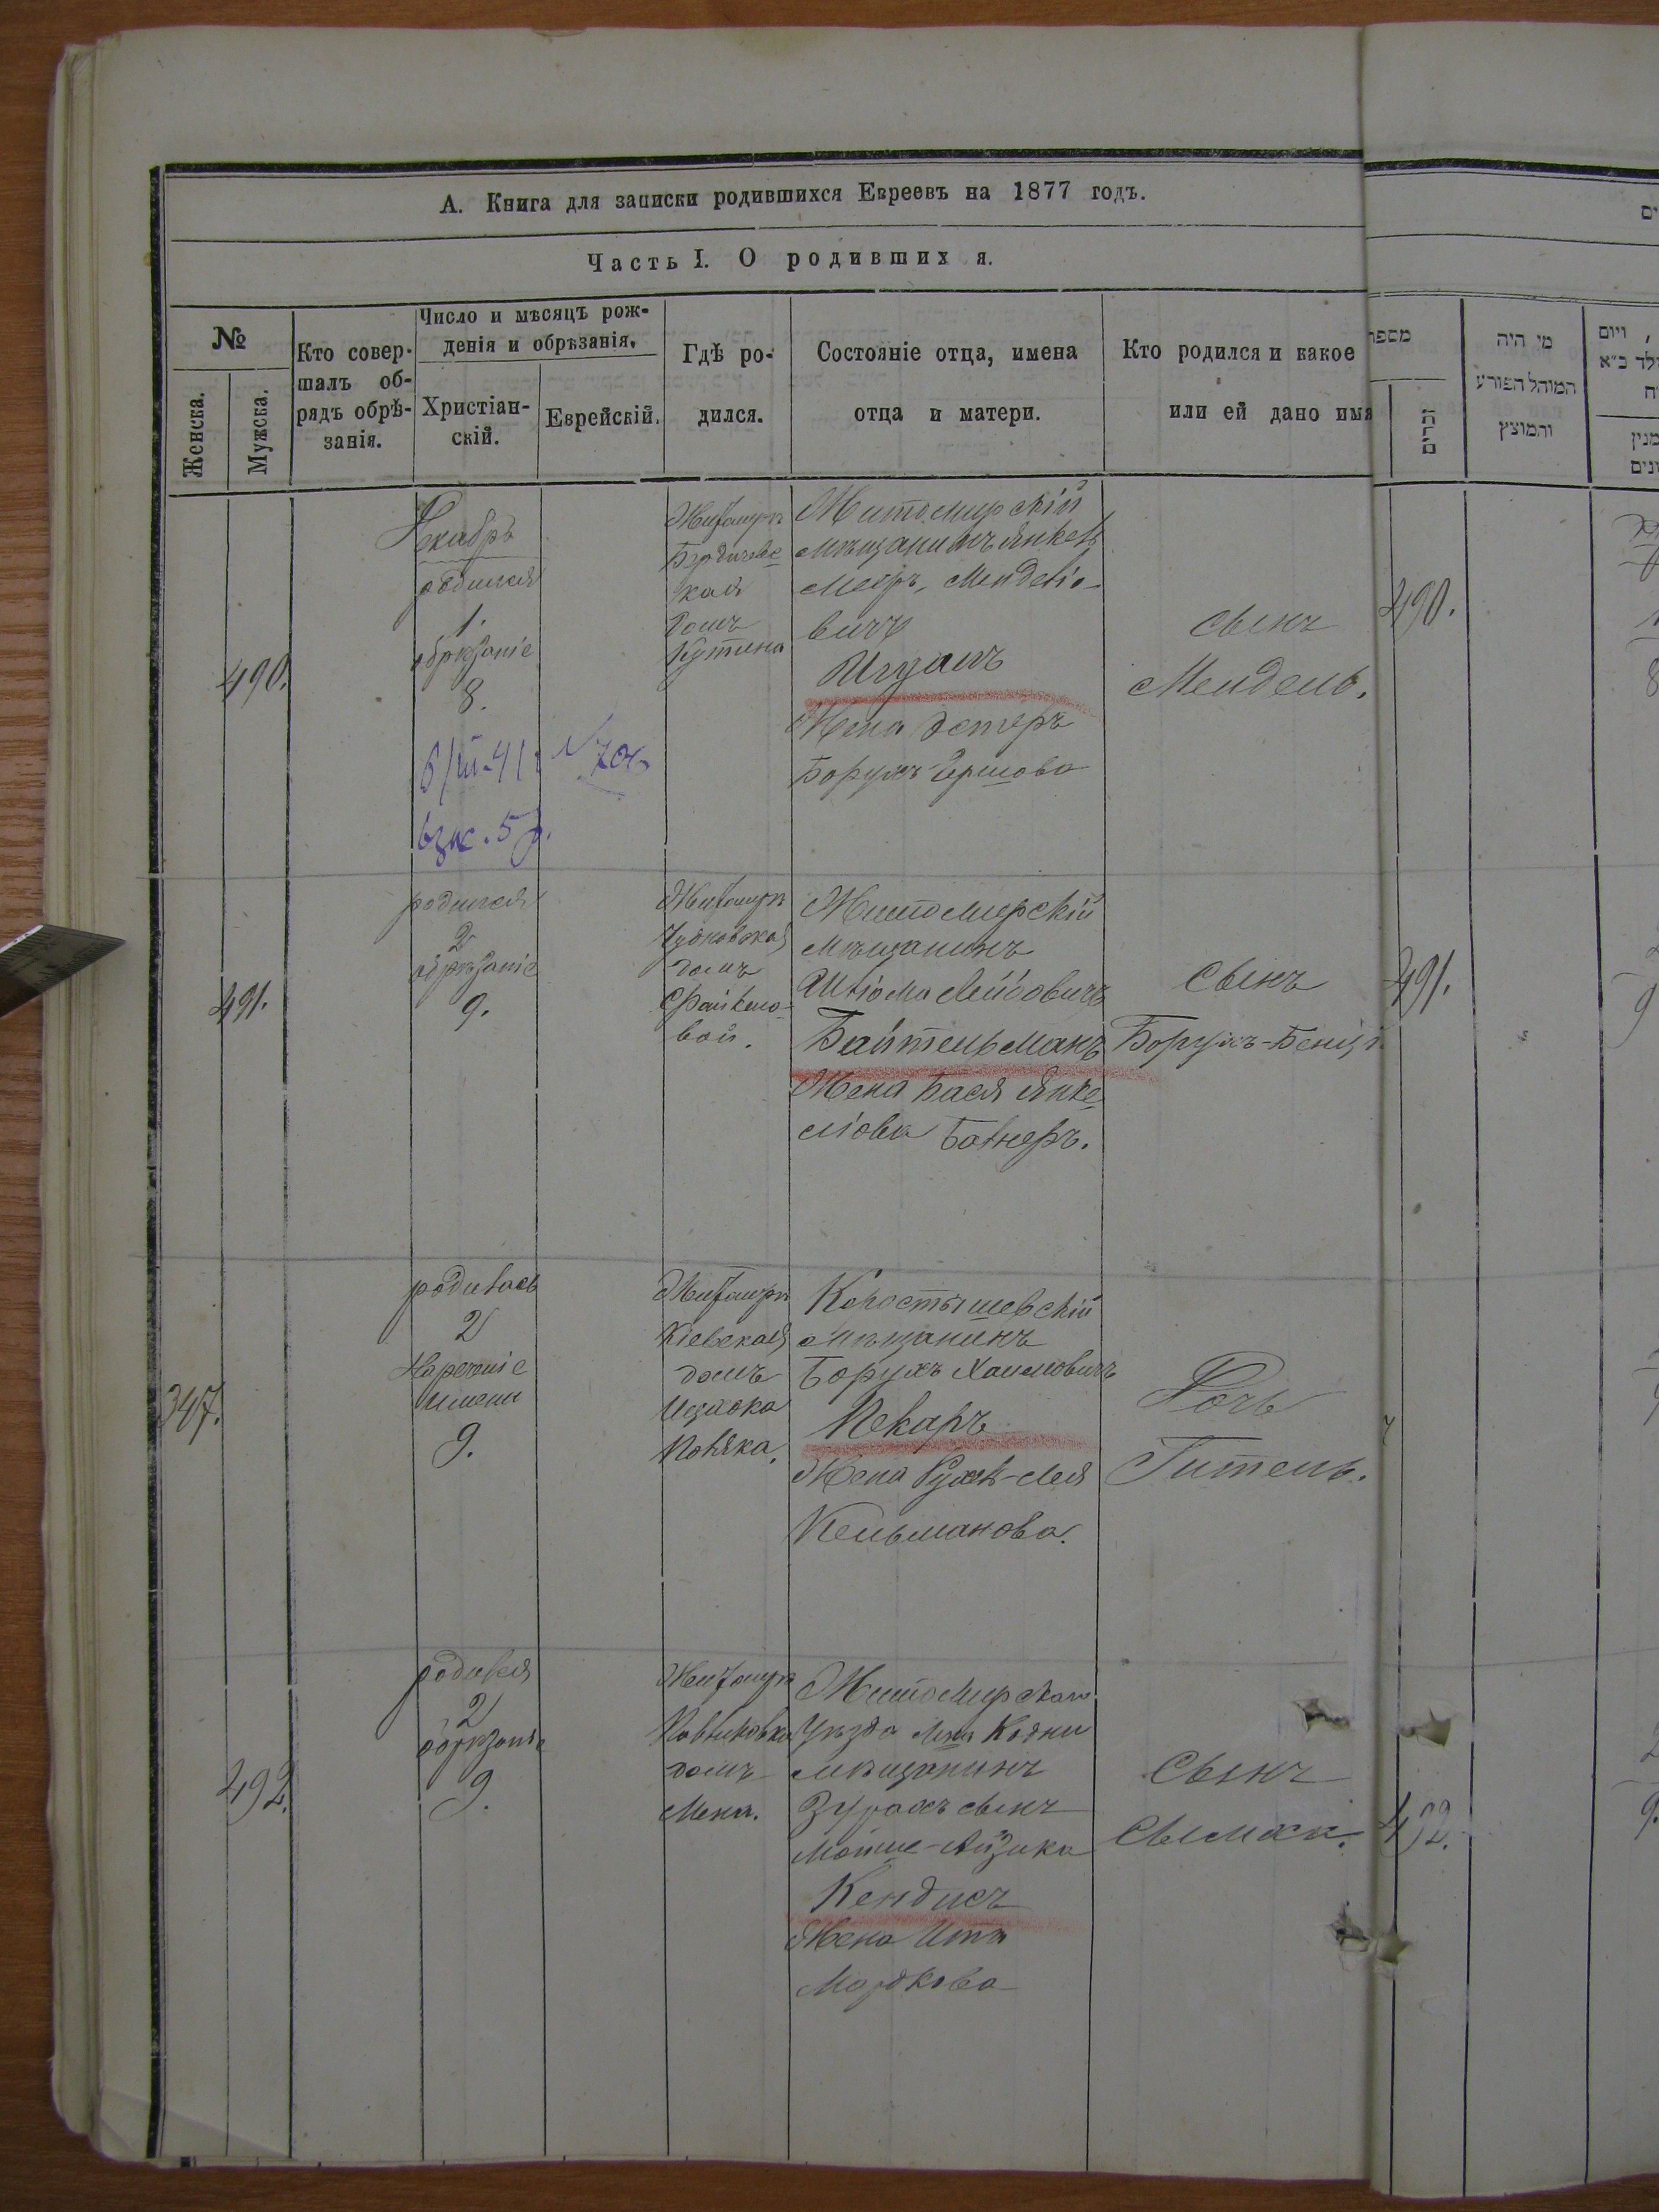 А. Книга для записки родившихся Евреевъ на 1877 годъ.
Часть I. О родивших я.
№
Женска.
Мужска.
Кто совер-
шалъ об-
рядъ обрѣ-
занія.
Число и мѣсяцъ рож-
денія и обрѣзанія.
Христіан-
скій.
Еврейскій.
Гдѣ ро-
дился.
Состояніе отца, имена
отца и матери.
Кто родился и какое
или ей дано имя
מספר
זכרים
מי היה
המוהל הפורע
והמוצץ
490.
Декабрь
родился
1.
обрѣзаніе
8.
взыс. 5 р.
Житомиръ
Бердичевс
кая
домъ
Кутина
Житомирскій
мѣщанинъ Янкель
Меѣръ, Менделіо-
вичъ
Жена Эстеръ
Борухъ Гершова
сынъ
Мендель.
490.
491.
родился
2
обрѣзаніе
9.
Житомиръ
Чудновская
домъ
Файкело-
вой.
Житомирскій
мѣщанинъ
Шліома Лейбовичъ
Байтельманъ
Жена Бася Янке
ліова
сынъ
Борухъ-
491.
347.
родилась
2
Нареченіе
имени
9.
Житомиръ
Кіевская
домъ
Ицкока
Поляка.
Коростышевскій
мѣщанинъ
Борухъ Хаимовичъ
Пекаръ
Жена Рухль-Лея
Кельманова.
Дочь
Гитель.
492.
родился
2
обрѣзаніе
9.
Житомиръ
домъ
Житомирскаго
Уѣзда мѣст. Кодни
мѣщанинъ
Зурахъ сынъ
Мотие-Айзика
Кендисъ
Жена Итя
Мордкова
Сынъ
492.